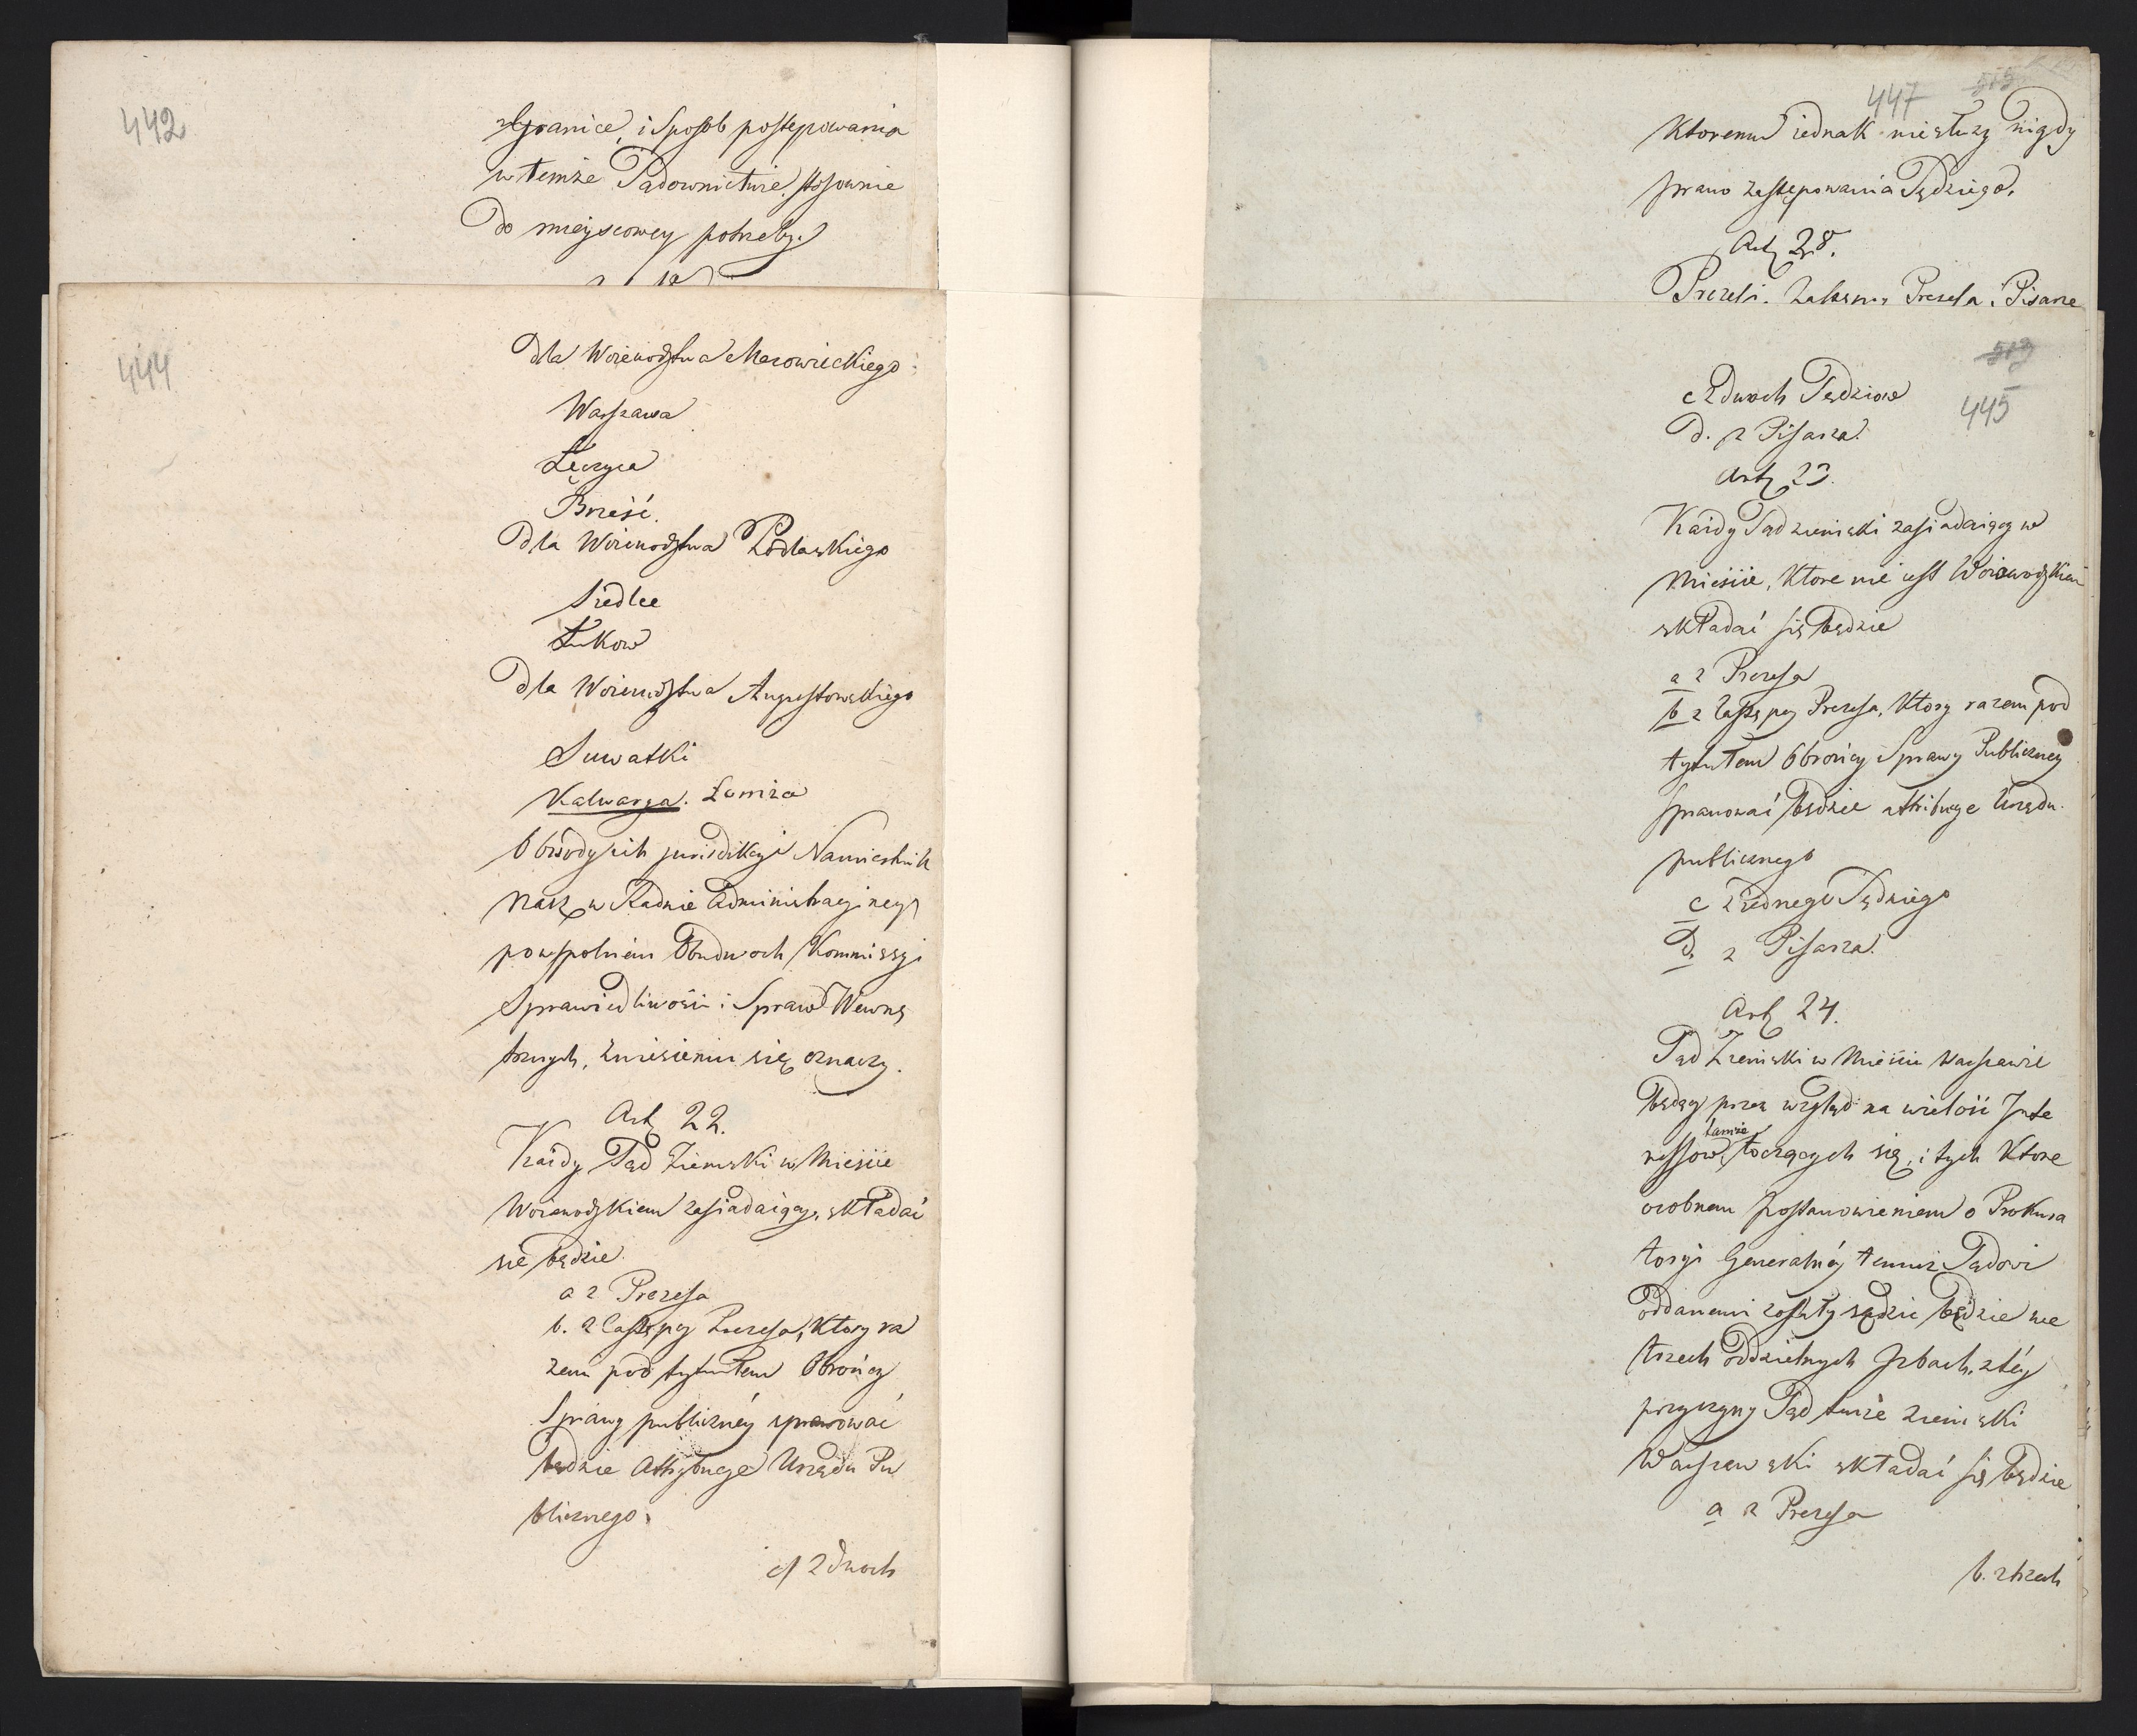 442
Granice, i Sposob postępowania
w temże Sądownictwie, stosownie
do mieyscowey potrzeby.
444
dla Woiewodztwa Mazowieckiego
Warszawa
Łęczyca
Brześć.
dla Woiewodztwa Podlaskiego
Siedlce
Łukow
dla Woiewodztwa Augustowskiego
Suwałki
Kalwarya. Łomża
Obwody ich jurisdikcyi Namiestnik
Nasz w Radzie Administracyiney
po wspolnem Obudwoch Kommissyi
Sprawiedliwości i Spraw Wewnę
trznych, zniesieniu się oznaczy.
Art 22.
Każdy Sąd Ziemski w Mieście
Woiewodzkiem zasiadaiący, składać
się będzie
a z Prezesa
b. z Zastępcy Prezesa, ktory ra
zem pod tytułem Obrońcy
Sprawy publicznéy sprawować
będzie Attrybucye Urzędu Pu
blicznego.
c/ z dwoch
447
515
Ktoremu iednak niesłuzy nigdy
prawo zastępowania Sędziego.
Art 28.
Prezesi. Zastępcy Prezesa i Pisarze
513
445
c Z dwoch Sędziow
D. z Pisarza.
Art 23.
Każdy Sąd ziemski zasiadaiący w
Mieście, ktore nie iest Woiewodzkiem
składać się będzie
a z Prezesa
b z Zastępcy Prezesa, ktory razem pod
tytułem Obrońcy Sprawy Publiczney
sprawować będzie attribucye Urzędu
publicznego
c z iednego Sędziego
D. z Pisarza.
Art 24.
Sąd Ziemski w Mieście Warszawie
będący przez wzgląd na wielość Inte
ressow, tamże toczących się, i tych ktore
osobnem postanowieniem o Prokura
toryi Generalnéy temuż Sądowi
oddanemi zostały sądzić będzie we
trzech Oddzielnych Izbach, z téy
przyczyny Sąd tenże ziemski
Warszawski składać się będzie
a z Prezesa
b. z trzech